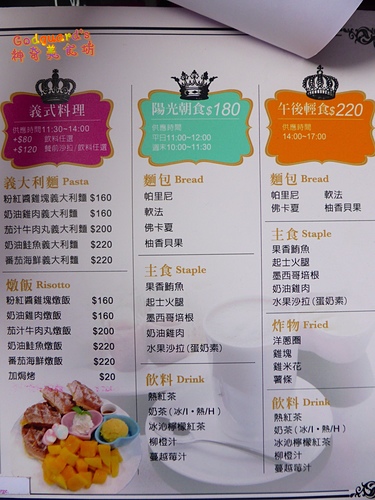 Godguard's
神奇義式坊
義式料理
供應時間11:30~14:00
+$80 飲料任選
+$120 餐前沙拉/飲料任選
義大利麵 Pasta
粉紅醬雞塊義大利麵 $160
奶油雞肉義大利麵 $160
茄汁牛肉丸義大利麵 $200
奶油鮭魚義大利麵 $220
番茄海鮮義大利麵 $220
燉飯 Risotto
粉紅醬雞塊燉飯 $160
奶油雞肉燉飯 $160
茄汁牛肉丸燉飯 $200
奶油鮭魚燉飯 $220
番茄海鮮燉飯 $220
加焗烤 $20
陽光朝食$180
供應時間
平日11:00~12:00
週末10:00~11:30
麵包 Bread
帕里尼
軟法
佛卡夏
柚香貝果
主食 Staple
果香鮪魚
起士火腿
墨西哥培根
奶油雞肉
水果沙拉(蛋奶素)
飲料 Drink
熱紅茶
奶茶(冰/I‧熱/H)
冰沁檸檬紅茶
柳橙汁
蔓越莓汁
午後輕食$220
供應時間
14:00~17:00
麵包 Bread
帕里尼 軟法
佛卡夏 柚香貝果
主食 Staple
果香鮪魚
起士火腿
墨西哥培根
奶油雞肉
水果沙拉(蛋奶素)
炸物 Fried
洋蔥圈
雞塊
雞米花
薯條
飲料 Drink
熱紅茶
奶茶(冰/I‧熱/H)
冰沁檸檬紅茶
柳橙汁
蔓越莓汁